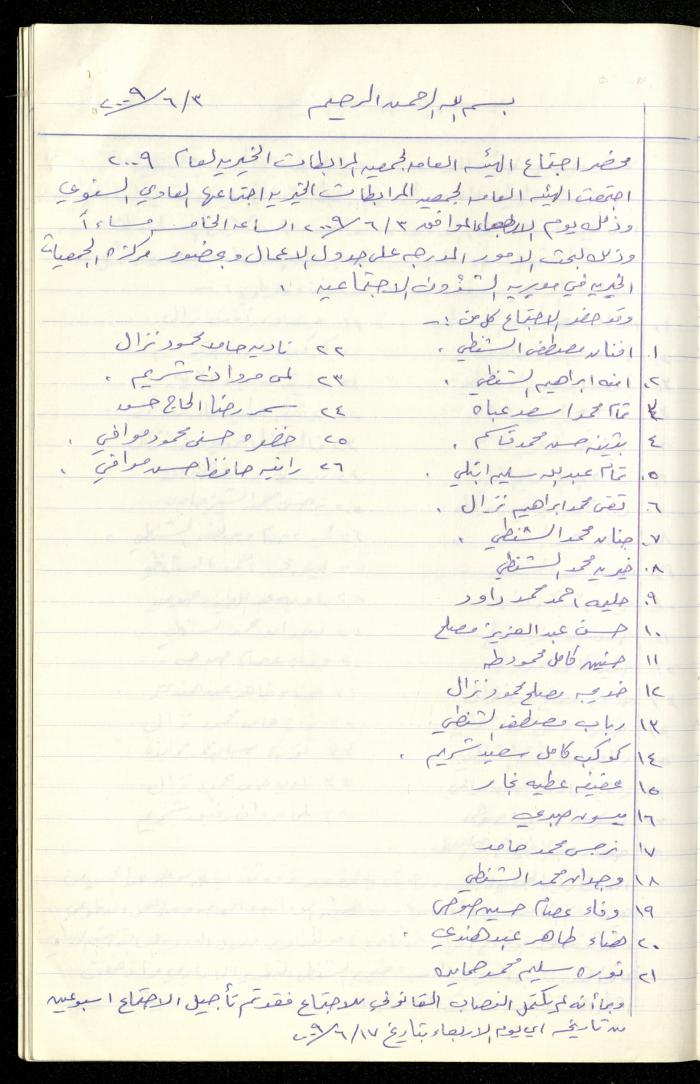 بسم الله الرحمن الرحيم ٢٠٠٩/٦/٣
محضر اجتماع الهيئه العامه لجمعيه المرابطات الخيريه لعام ٢٠٠٩
اجتمعت الهيئه العامه لجمعيه المرابطات الخيريه اجتماعها العادي السنوي
وذلك يوم الاربعاء الموافق ٢٠٠٩/٦/٣ الساعه الخامسه مساءاً
وذلك لبحث الامور المدرجه على جدول الاعمال وبحضور مركزة الجمعيات
الخيريه في مديريه الشؤون الاجتماعيه .
وقد حضر الاجتماع كل من :-
١. افنان مصطفى الشنطي .
٢. امنه ابراهيم الشنطي .
٣ تمام محمد اسعد عباه
٤ بثينه حسن محمد قاسم .
٥. تمام عبدالله سليم ابتلي .
٦. تقى محمد ابراهيم نزال .
٧. جنان محمد الشنطي .
٨. خيريه محمد الشنطي
٩. حليمه احمد محمد داود
١٠. حسن عبد العزيز مصلح
١١ حنين كامل محمود طه
١٢ خديجه مصلح محمود نزال
١٣ رباب مصطفى الشنطي
١٤ كوكب كامل سعيد شريم .
١٥ عفيفه عطيه نجار
١٦ ميسون صبري
١٧ نرجس محمد حامد
١٨ وجدان محمد الشنطي
١٩ وفاء عصام حسين صوص
٢٠ هناء طاهر عبد هندي .
٢١ نوره سليم محمد حمايده
٢٢ ناديه حامد محمود نزال
٢٣ لمى مروان شريم .
٢٤ سمر رضا الحاج حسن
٢٥ خضره حسني محمود موافي .
٢٦ رانيه حافظ حسن موافي .
وبما أنه لم يكتمل النصاب القانوني للاجتماع فقد تم تأجيل الاجتماع اسبوعين
من تاريخه اي يوم الاربعاء بتاريخ ٢٠٠٩/٦/١٧